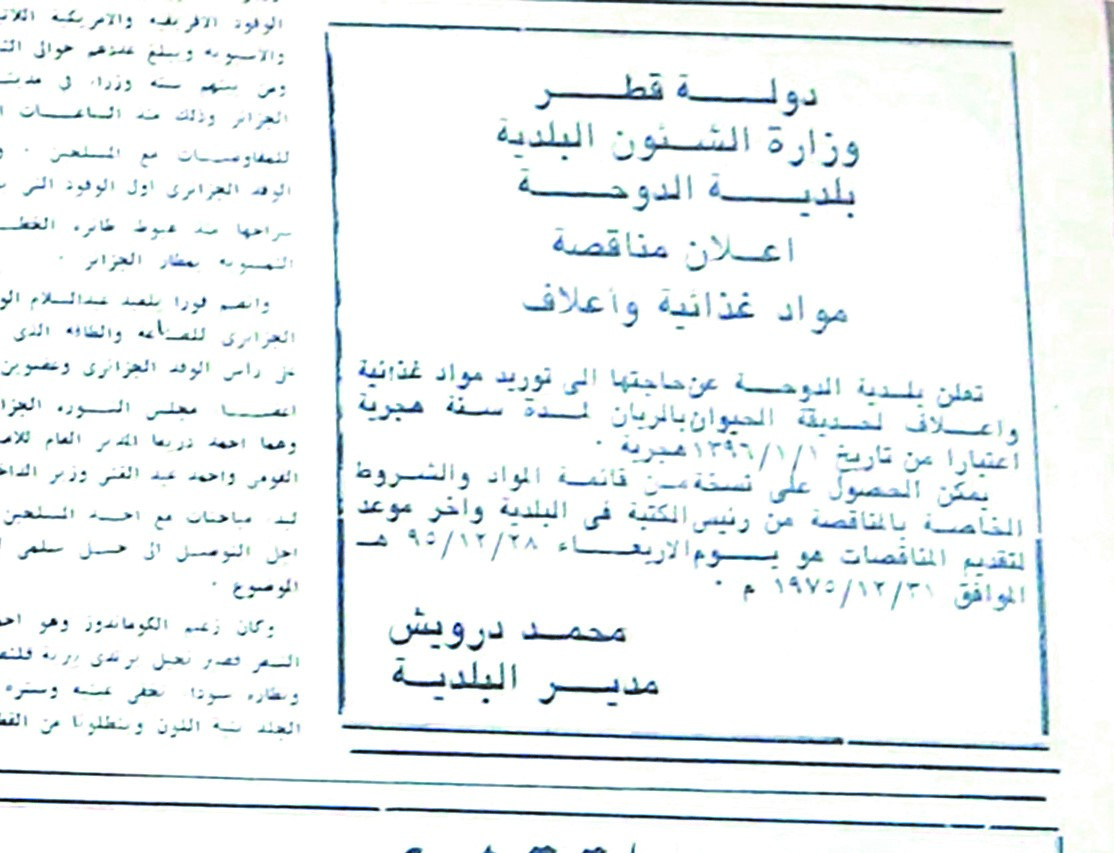 دولة قطر
وزارة الشئون البلدية
بلدية الدوحة
اعلان مناقصة
مواد غذائية وأعلاف
تعلن بلدية الدوحة عن حاجتها الى توريد مواد غذائية
واعلاف لحديقة الحيوان بالريان لمدة سنة هجرية
اعتبارا من تاريخ ١٣٩٦/١/١ هجرية .
يمكن الحصول على نسخة من قائمة المواد والشروط
الخاصة بالمناقصة من رئيس الكتبة فى البلدية وآخر موعد
لتقديم المناقصات هو يوم الاربعاء ٩٥/١٢/٢٨ هـ
الموافق ١٩٧٥/١٢/٣١ م .
محمد درويش
مدير البلدية
الوفود الافريقية والامريكية
ويبلغ عددهم حوالى
ومن بينهم ستة وزراء فى
الجزائر وذلك منذ الساعات
للمفاوضات مع المسلحين .
الوفد الجزائرى اول الوفود التى
سراحها منذ هبوط طائرة
النمسوية بمطار الجزائر .
وانضم فورا بلعيد عبدالسلام
الجزائرى للصناعة والطاقة الذى
على رأس الوفد الجزائرى وعضوين
مجلس الثورة
وهما احمد المدير العام
القومى واحمد عبد الغنى وزير
مباحثات مع احد المسلحين
اجل التوصل الى حل سلمى
الموضوع .
وكان زعيم الكوماندوز وهو
الشعر قصير نحيل يرتدى
ونظارة سوداء تخفى عينيه وسترة
الجلد بنية اللون وبنطلونا من